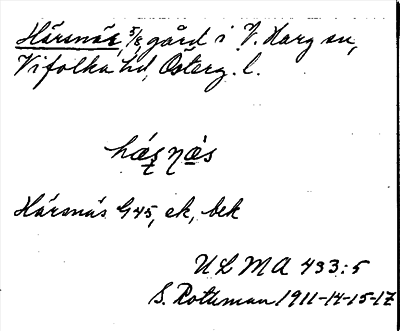 Härsnäs, 5/8 gård i V. Harg sn,
Vifolka hd, Österg. l.
hás̱ nä̱s
Härsnäs G45, ek, bek
ULMA 433:5
S. Rothman 1911-14-15-17